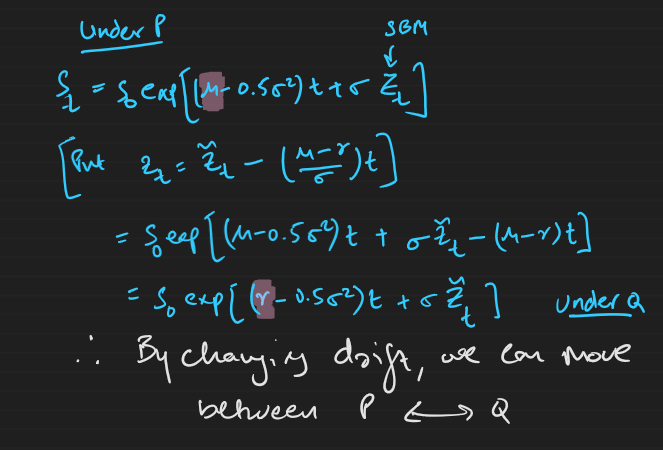 Under P
SBM
S_t = S_0 exp[(μ - 0.5σ²)t + σ Z̃_t]
[Put z_t = Z̃_t - (μ-r/σ)t]
= S_0 exp[(μ-0.5σ²)t + σZ̃_t - (μ-r)t]
= S_0 exp[(r - 0.5σ²)t + σ Z̃_t] Under Q
∴ By changing drift, we can move
between P ⟷ Q